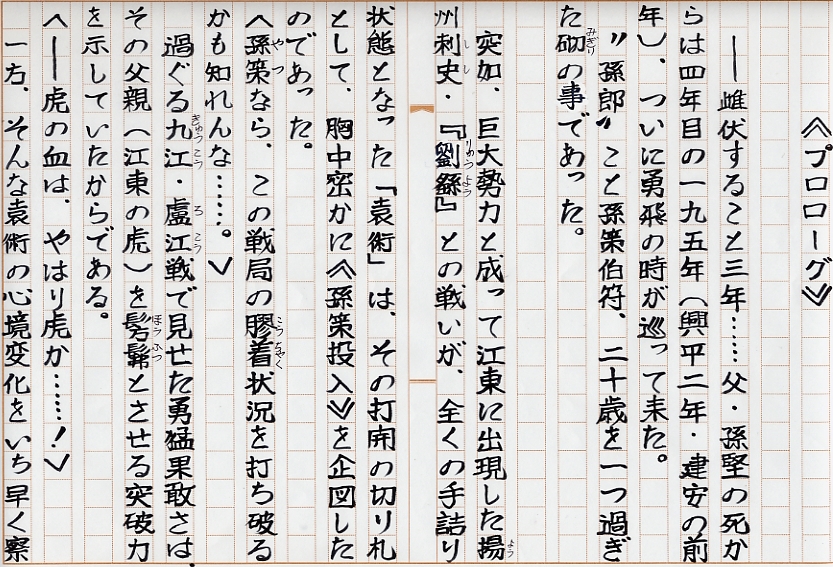 《プロローグ》
――雌伏すること三年……父・孫堅の死か
らは四年目の一九五年(興平二年・建安の前
年)、ついに勇飛の時が巡って来た。
〝孫郎〟こと孫策伯符、二十歳を一つ過ぎ
た砌の事であった。
突如、巨大勢力と成って江東に出現した揚
州刺史・『劉繇』との戦いが、全くの手詰り
状態となった「袁術」は、その打開の切り札
として、胸中密かに《孫策投入》を企図した
のであった。
〈孫策なら、この戦局の膠着状況を打ち破る
かも知れんな……。〉
過ぐる九江・盧江戦で見せた勇猛果敢さは、
その父親(江東の虎)を髣髴とさせる突破力
を示していたからである。
〈――虎の血は、やはり虎か……!〉
一方、そんな袁術の心境変化をいち早く察